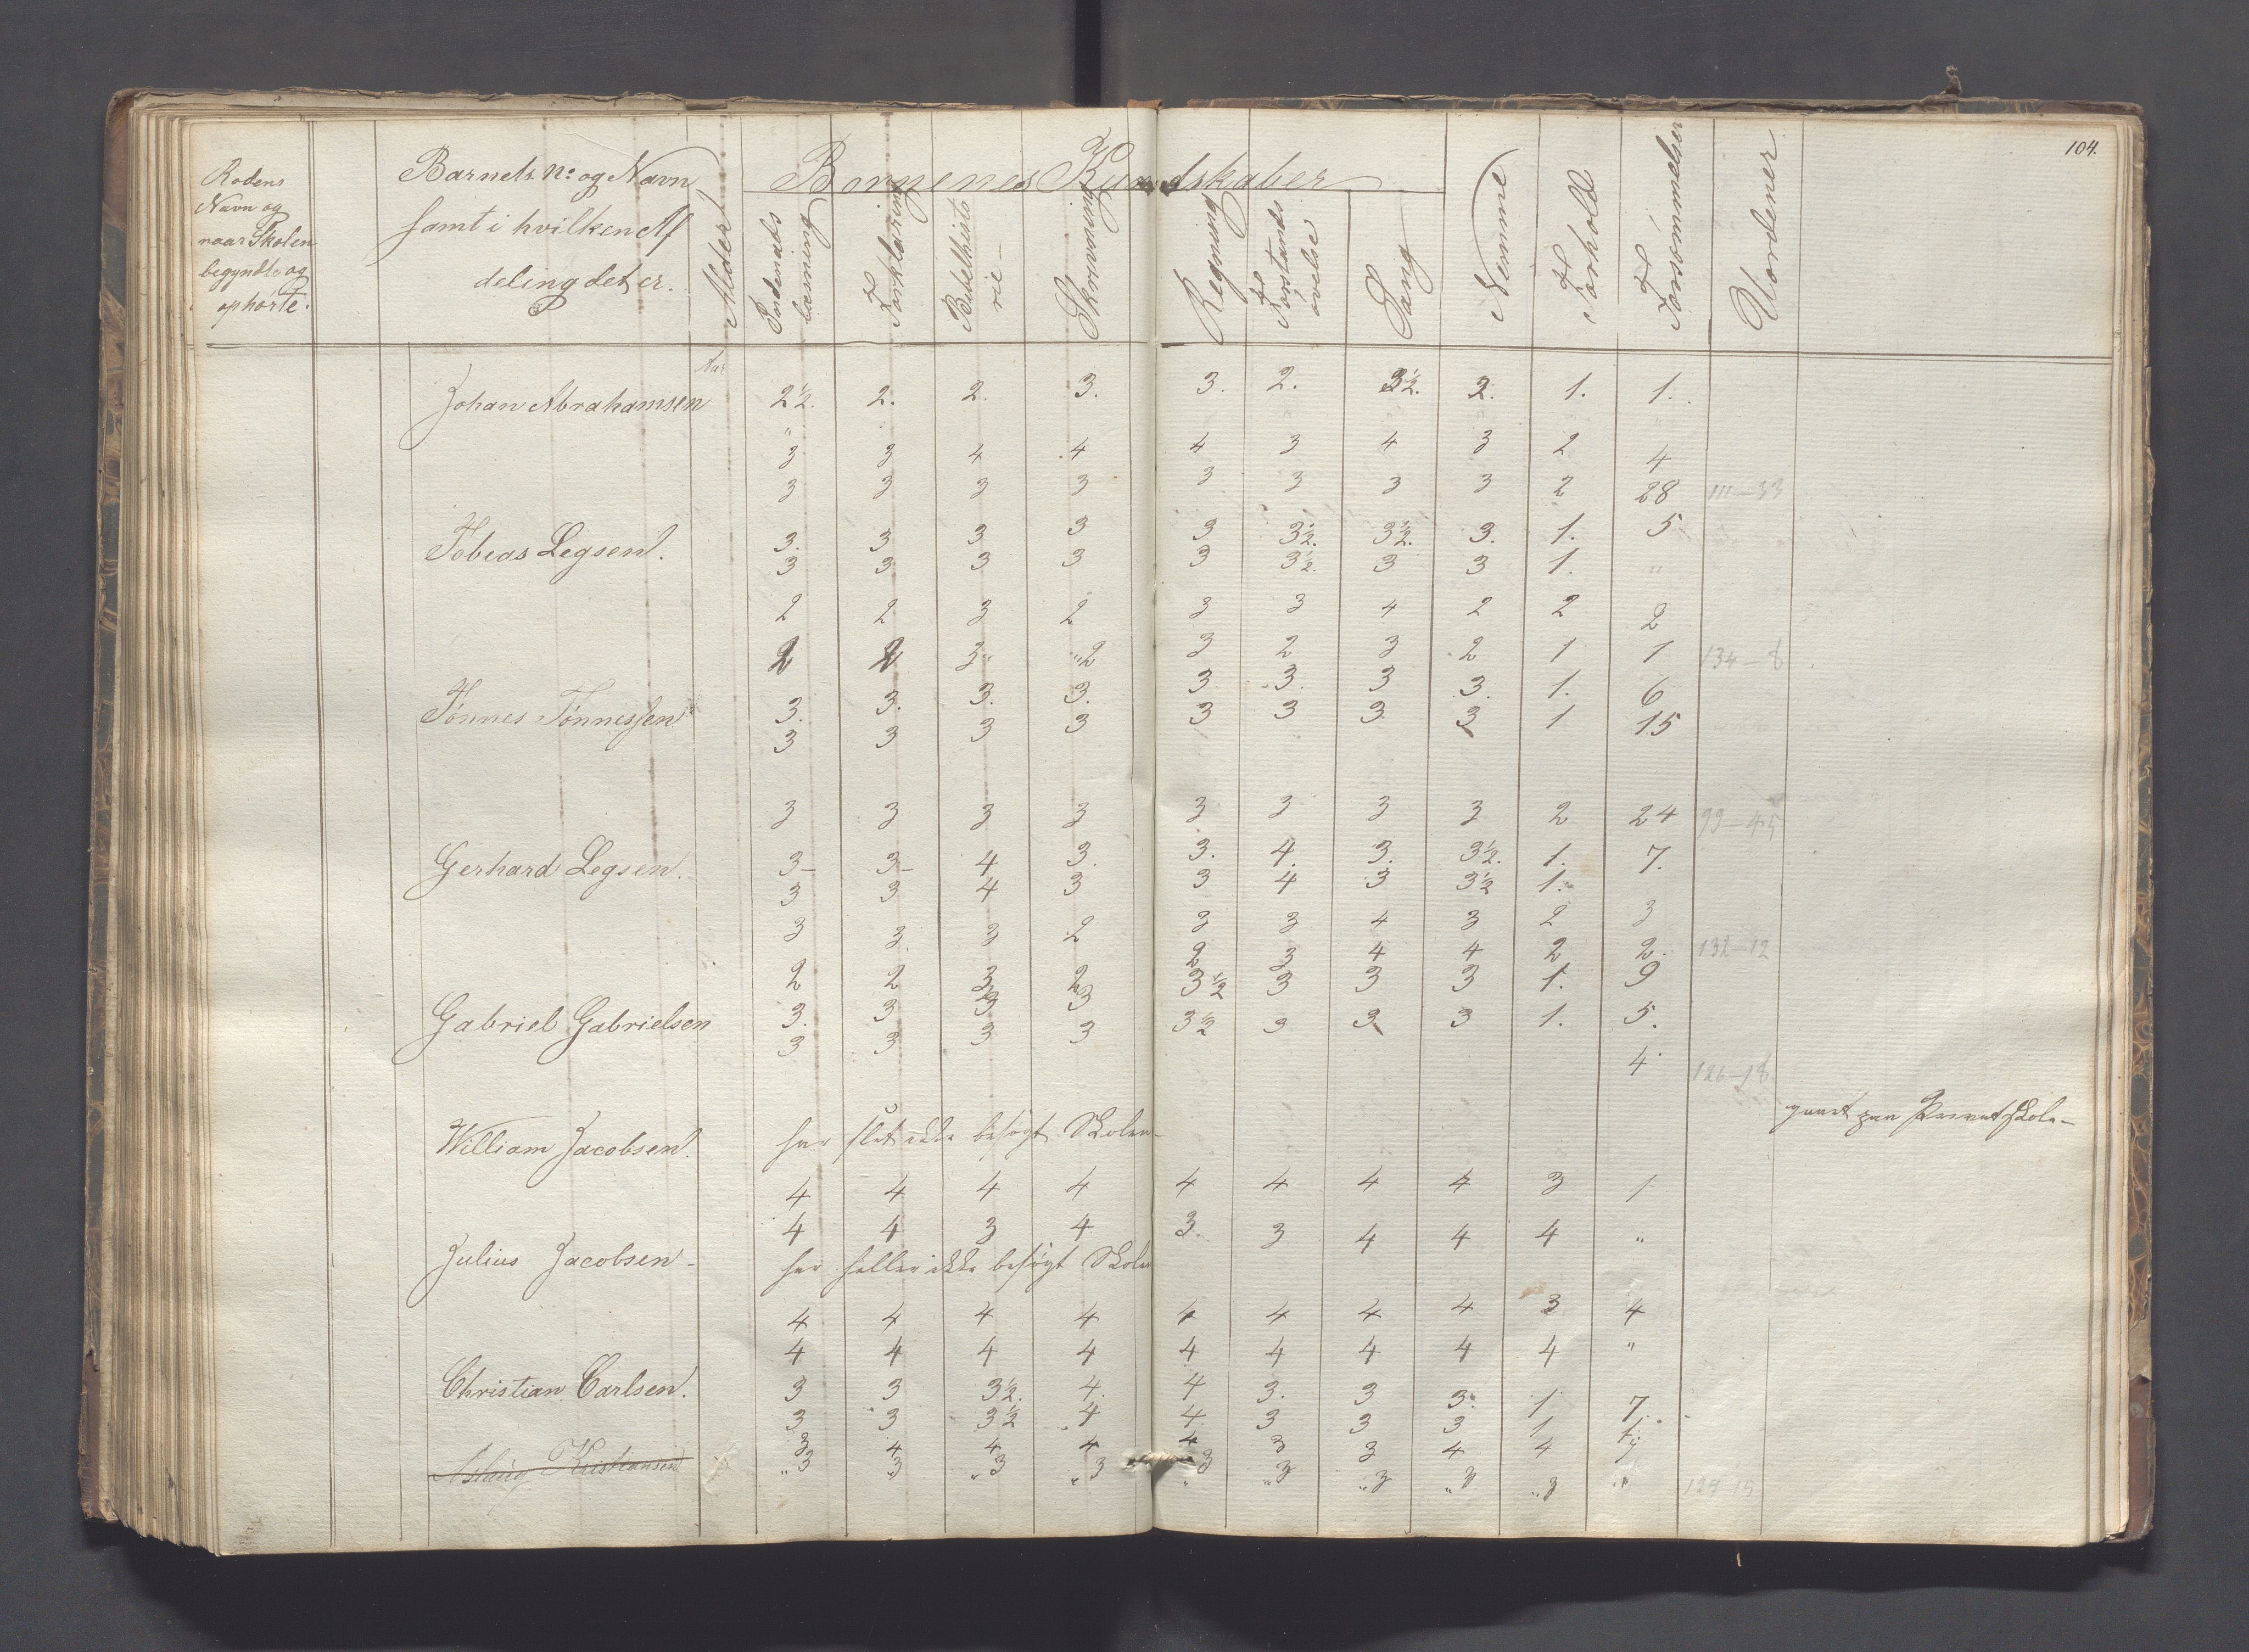 104.
Rodens
Navn og
naar Skolen
begyndte og
ophørte.
Barnets No og Navn
samt i hvilken Af
deling det er.
Alder
Børnenes Kundskaber
Indenads
læsning
Forklaring
Bibelhisto
rie
Skrivning
Regning
Forstands
øvelse
Sang
Nemme
Forhold
Forsømmelser
Uordener
Aar
Johan Abrahamsen 2½. 2. 2. 3. 3. 2. 3½. 2. 1. 1.
3 3 4 4 4 3 4 3 2 4
3 3 3 3 3 3 3 3 2 28 111–33
Tobias Legsen. 3. 3 3 3 3 3½. 3½. 3. 1. 5
3 3 3 3 3 3½. 3 3 1. "
2 2 3 2 3 3 4 2 2 2
2 2 3" "2 3 2 3 2 1 1 134–8
Tønnes Tønnessen 3. 3. 3. 3. 3 3. 3 3. 1. 6
3 3 3 3 3 3 3 3 1 15
3 3 3 3 3 3 3 3 2 24 99–45
Gerhard Legsen. 3– 3– 4 3. 3. 4. 3. 3½. 1. 7.
3 3 4 3 3 4 3 3½ 1.
3 3. 3 2 3 3 4 3 2 3
2 2 3 2 2 3 4 4 2 2. 132–12
Gabriel Gabrielsen 3. 3 3 3 3½ 3 3 3 1. 9
3 3 3 3 3½ 3 3 3 1. 5.
4 126–18
William Jacobsen. har slet ikke besøgt Skolen– gaaet paa Privatskole–
4 4 4 4 4 4 4 4 3 1
4 4 3 4 3. 3 4 4 4 "
Julius Jacobsen– har heller ikke besøgt Skolen
4 4 4 4 4 4 4 4 3 4
4 4 4 4 4 4 4 4 4 "
Christian Carlsen. 3 3 3½. 4. 4 3. 3 3. 1 7.
3 3 3½ 4 4 3 3 3 1
3 4 4 4 4 3 3 4 4
Aslaug Kristiansen "3 "3 "3 "3 "3 "3 "3 "3 "3 " 129 15